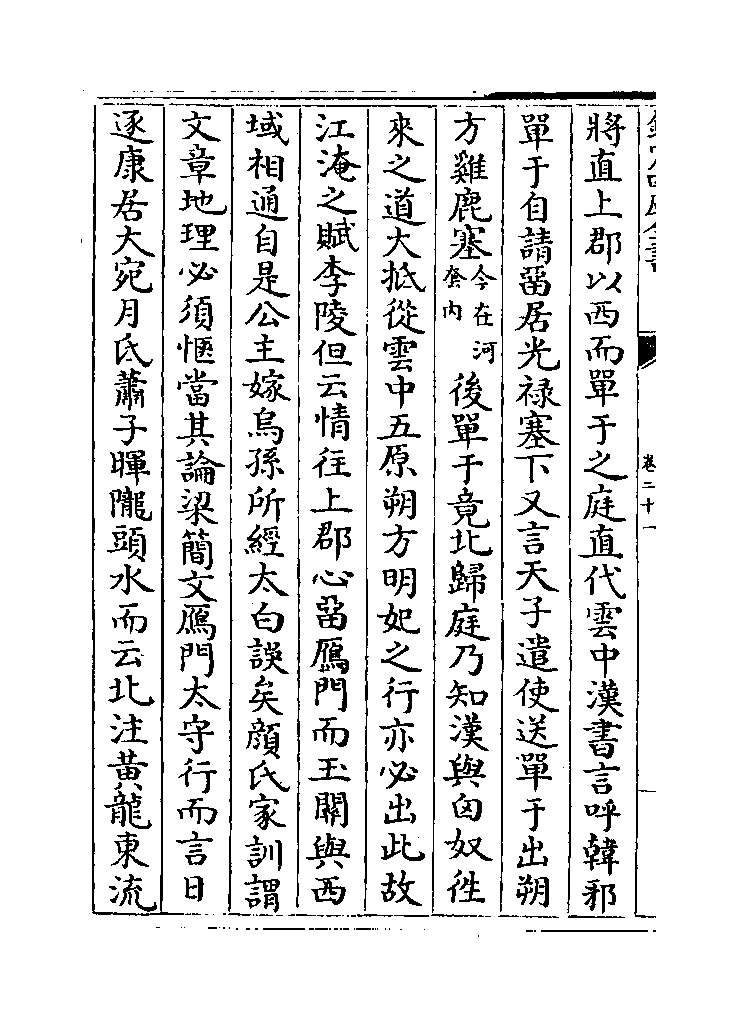 欽定四庫全書
卷二十一
將直上郡以西而單于之庭直代雲中漢書言呼韓邪
單于自請畱居光祿塞下又言天子遣使送單于出朔
方雞鹿塞今在河套内後單于竟北歸庭乃知漢與匈奴徃
來之道大抵從雲中五原朔方明妃之行亦必出此故
江淹之賦李陵但云情往上郡心畱鴈門而玉關與西
域相通自是公主嫁烏孫所經太白誤矣顔氏家訓謂
文章地理必須愜當其論梁簡文鴈門太守行而言日
逐康居大宛月氏蕭子暉隴頭水而云北注黄龍東流